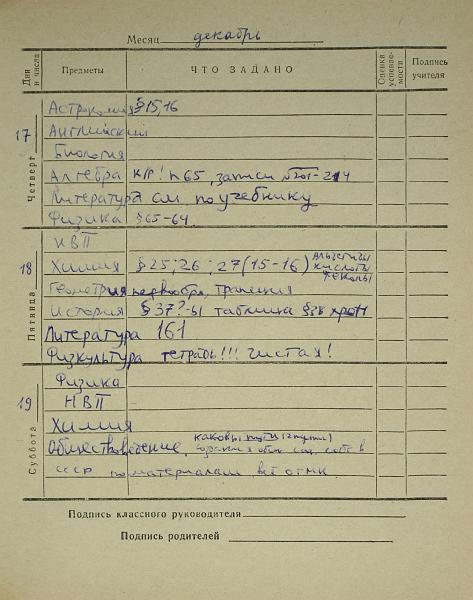 Месяц декабрь
Дни и числа Предметы ЧТО ЗАДАНО Оценка успеваемости Подпись учителя
17 Четверг
Астрономия §15,16
Английский
Биология
Алгебра К/Р! п 65, записи №201-214
Литература см. по учебнику
Физика §65-64.
18 Пятница
НВП
Химия §25; 26; 27 (15-16) кислоты фенолы
Геометрия
История §37 ?-ы таблица §38
Литература 161
Физкультура тетрадь!!! чистая!
19 Суббота
Физика
НВП
Химия
Обществоведение. каковы пути (2 пути)
СССР по материалам
Подпись классного руководителя
Подпись родителей